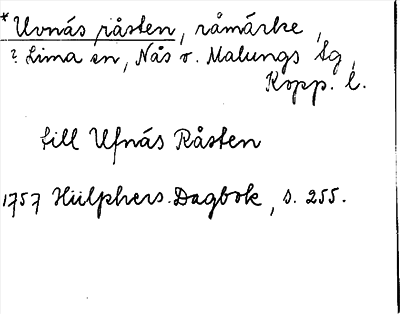 * Uvnäs råsten, råmärke,
? Lima sn, Nås o. Malungs tg,
Kopp. l.
till Ufnäs Råsten
1757 Hülphers Dagbok, s. 255.